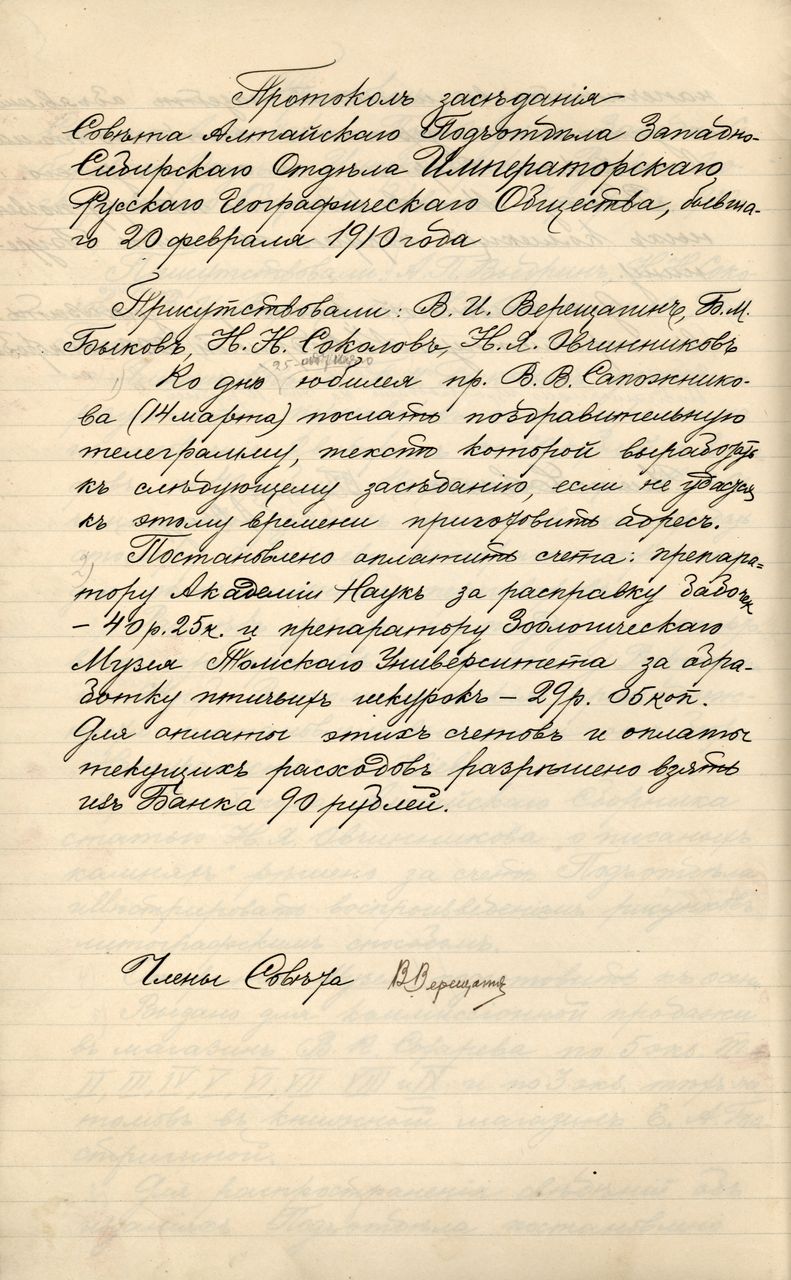 Протоколъ засѣданія
Совѣта Алтайскаго Подъотдѣла Западно-
Сибирскаго Отдѣла Императорскаго
Русскаго Географическаго Общества, бывша-
го 20 февраля 1910 года
Присутствовали: В. И. Верещагинъ, Б. М.
Быковъ, Н. Н. Соколовъ, Н. Я. Овчинниковъ
1) Ко дню юбилея пр. В. В. Сапожнико-
ва (14 марта) послать поздравительную
телеграмму, текстъ которой выработать
къ слѣдующему засѣданію, если не удастся
къ этому времени приготовить адресъ.
2) Постановлено оплатить счета: препара-
тору Академіи Наукъ за расправку бабочек
– 40 р. 25 к. и препаратору Зоологическаго
Музея Томскаго Университета за обра-
ботку птичьихъ шкурокъ – 29 р. 05 коп.
Для оплаты этихъ счетовъ и оплаты
текущихъ расходовъ разрѣшено взять
изъ Банка 90 рублей.
Члены Совѣта В Верещагин